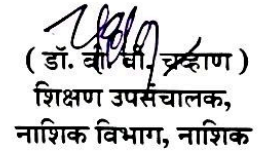 ( डॉ. बी. बी. चव्हाण )
शिक्षण उपसंचालक,
नाशिक विभाग, नाशिक